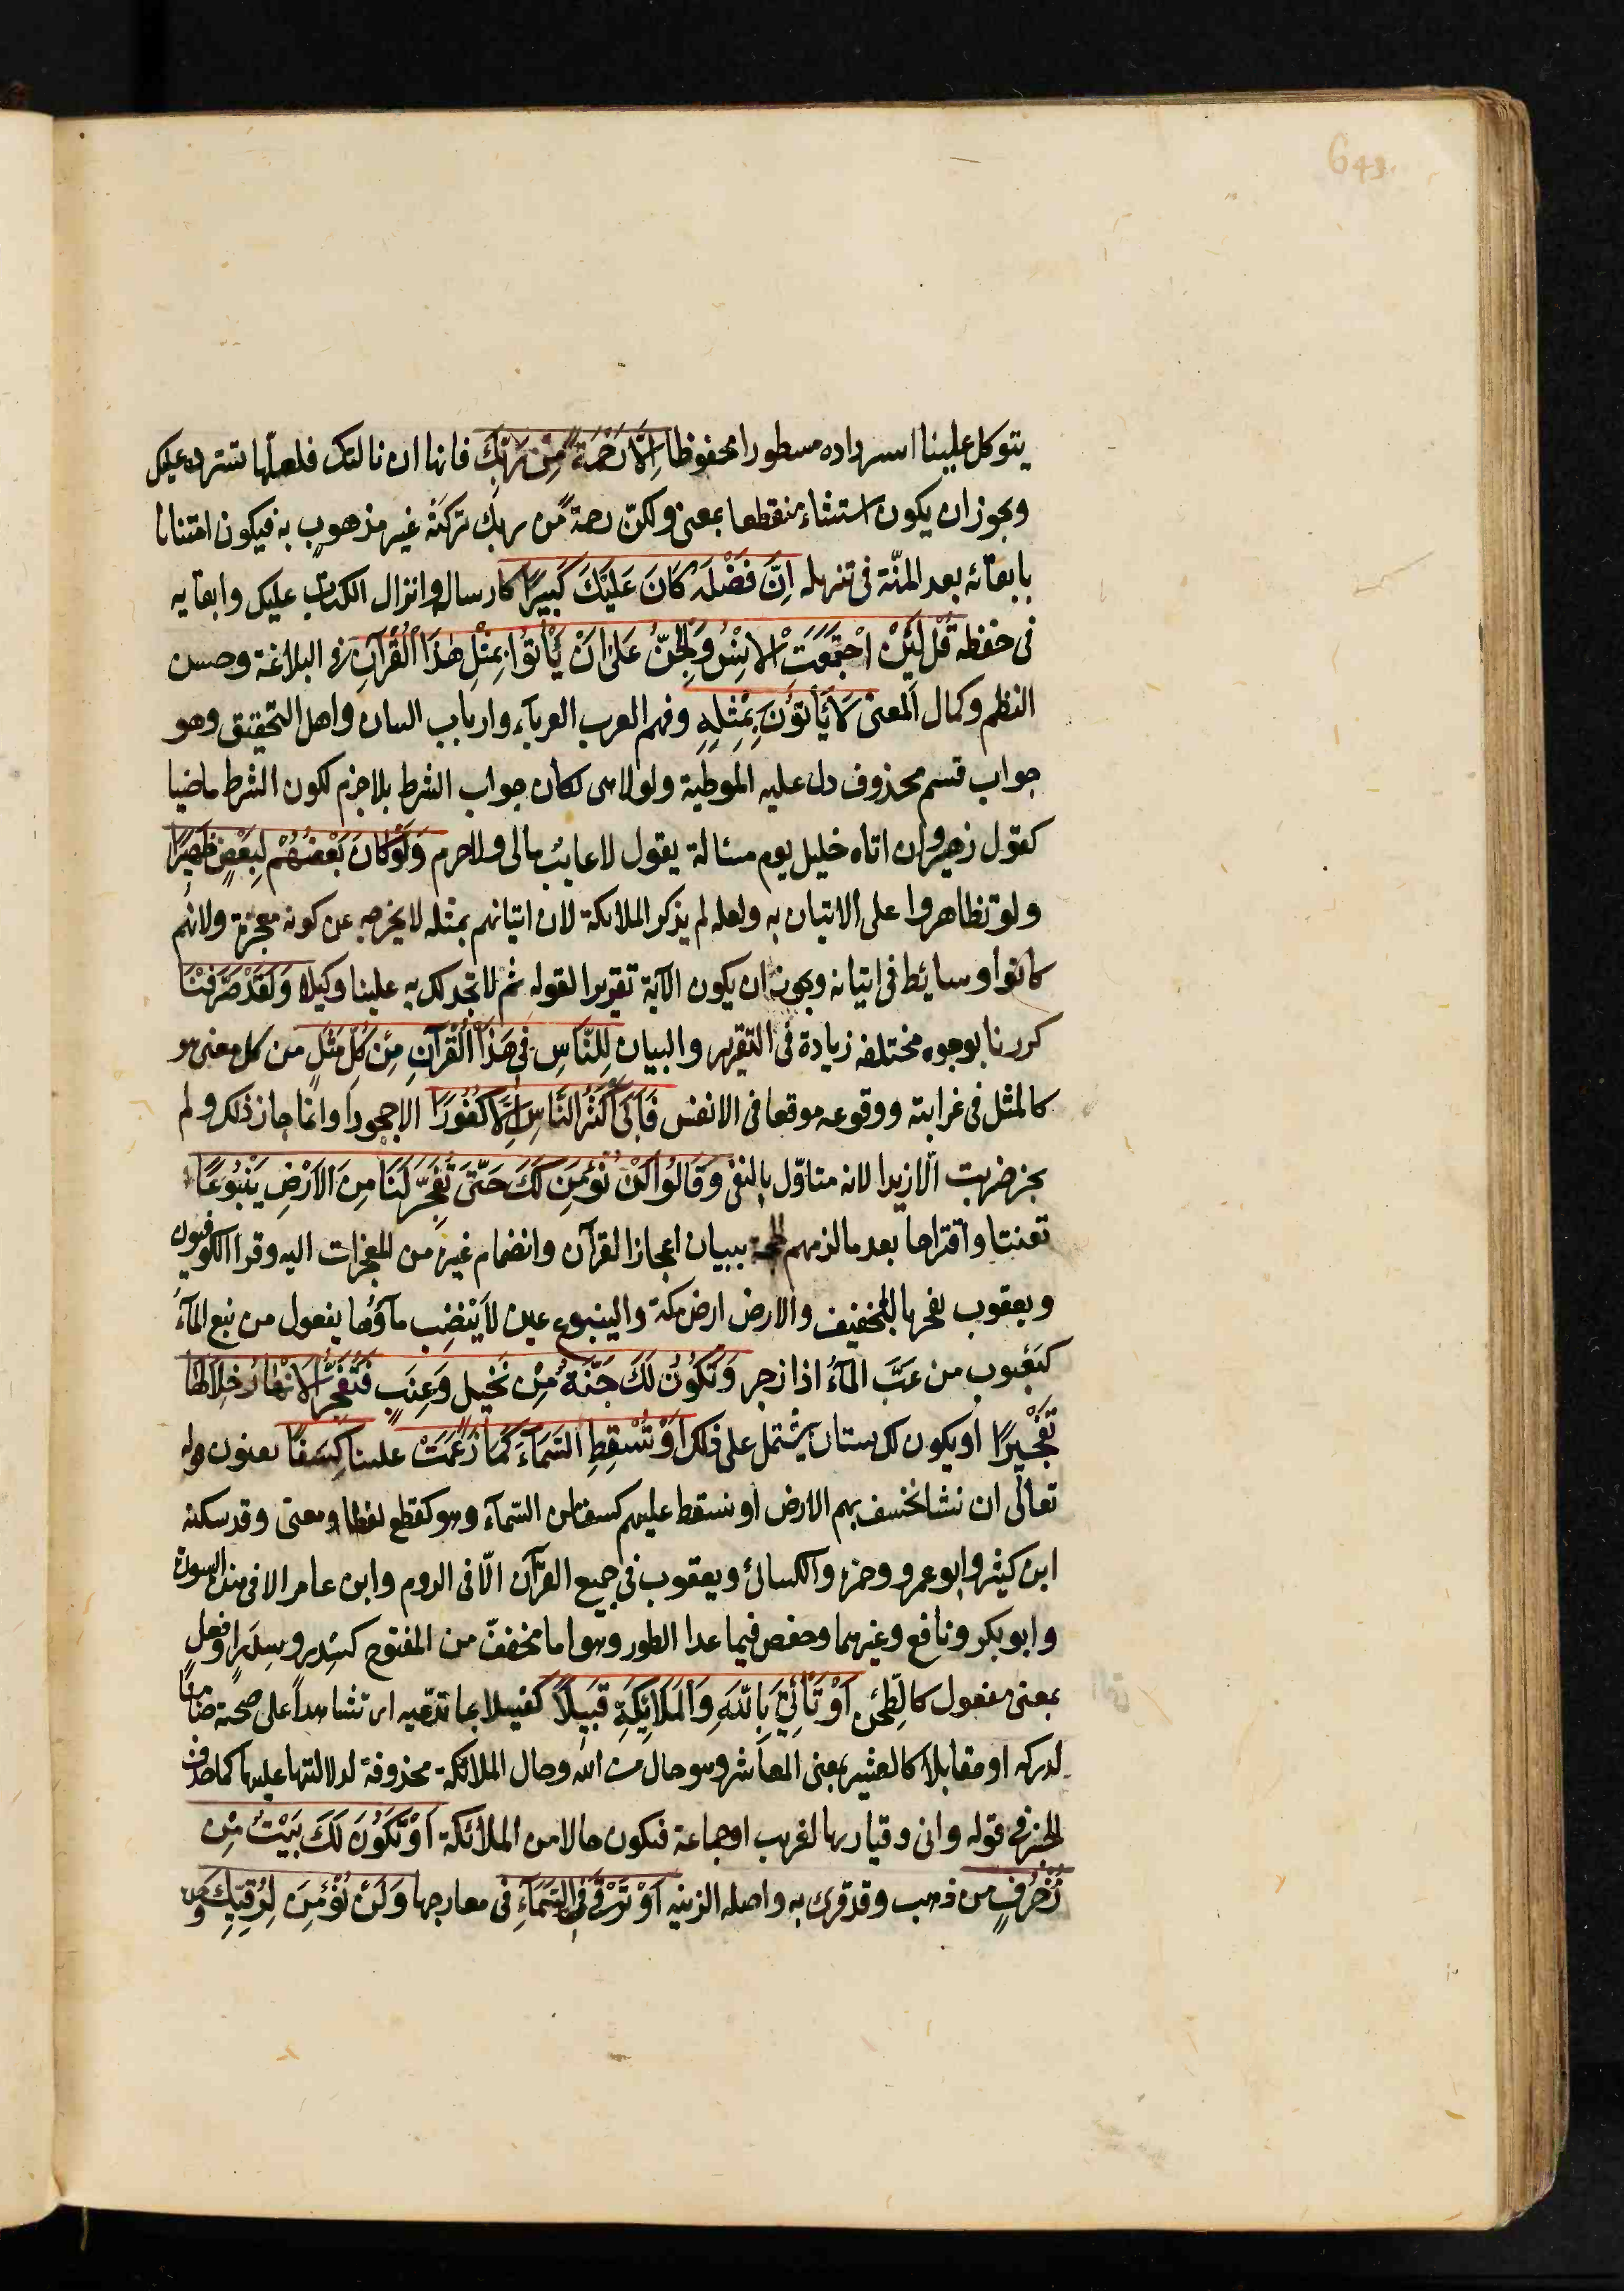 649
يتوكل علينا استرداده مسطورا محفوظا اِلَّا رَحْمَةً مِنْ رَبِّكَ فانها ان نالتك فلعلّها تسترده عليك
ويجوز ان يكون استثناء منقطعا بمعنى ولكنّ رحمةً من ربك تركته غير مذهوب به فيكون امتنانا
بابقآئه بعد المنّة في تنزيله اِنَّ فَضْلَهُ كَانَ عَلَيْكَ كَبِيرًا كارساله وانزال الكتاب عليك وابقآيه
في حفظه قُلْ لَئِنِ اجْتَمَعَتِ الْاِنْسُ وَالْجِنُّ عَلٰى اَنْ يَأْتُوا بِمِثْلِ هٰذَا الْقُرْآنِ في البلاغة وحسن
النظم وكمال المعنى لَا يَأْتُونَ بِمِثْلِهِ وفيهم العرب العربآء وارباب البيان واهل التحقيق وهو
جواب قسم محذوف دل عليه الموطئة ولولا هى لكان جواب الشرط بلا جزم لكون الشرط ماضيا
كقول زهير وان اتاه خليل يوم مسئالة يقول لا غايب مالى ولا حرم وَلَوْ كَانَ بَعْضُهُمْ لِبَعْضٍ ظَهِيرًا
ولو تظاهروا على الاتيان به ولعله لم يذكر الملائكة لان اتيانهم بمثله لا يخرجه عن كونه معجزة ولانهم
كانوا وسايط في اتيانه ويجوز ان يكون الآية تقريرا لقوله ثم لا تجد لك به علينا وكيلا وَلَقَدْ صَرَّفْنَا
كررنا بوجوه مختلفة زيادة في التقرير والبيان لِلنَّاسِ فِي هٰذَا الْقُرْآنِ مِنْ كُلِّ مَثَلٍ من كل معنى هو
كالمثل في غرابته ووقوعه موقعا في الانفس فَاَبٰى اَكْثَرُ النَّاسِ اِلَّا كُفُورًا الا جحودا وانما جاز ذلك ولم
يجز ضربت الّا زيدا لانه متاوّل بالنفى وَقَالُوا لَنْ نُؤْمِنَ لَكَ حَتّٰى تَفْجُرَ لَنَا مِنَ الْاَرْضِ يَنْبُوعًا
تعنتا واقتراحا بعد ما لزمهم الحجة ببيان اعجاز القرآن وانضمام غيره من المعجزات اليه وقرا الكوفيون
ويعقوب تفجر بالتخفيف والارض ارض مكة والينبوع عين لَا يَنْضِب مآؤُها يفعول من نبع المآءُ
كيَعْبوب من عَبَّ المآءُ اذا زجر وَتَكُونَ لَكَ جَنَّةٌ مِنْ نَخِيلٍ وَعِنَبٍ فَتُفَجِّرَ الْاَنْهَارَ خِلَالَهَا
تَفْجِيرًا او يكون لك بستان يشتمل على ذلك اَوْ تُسْقِطَ السَّمَآءَ كَمَا زَعَمْتَ علينا كِسَفًا يعنون قوله
تعالى ان نشا نخسف بهم الارض او نسقط عليهم كسفا من السّمآء وهو كقطع لفظا ومعنى وقد سكنه
ابن كثير وابو عمرو وحمزة والكسائى ويعقوب في جميع القرآن الّا في الروم وابن عامر الا في هذه السورة
وابو بكر ونافع وغيرهما وحفص فيما عدا الطور وهو اما مخففّ من المفتوح كسِدْر وسِدَر او فعل
بمعنى مفعول كالطِّحْن اَوْ تَأْتِيَ بِاللّٰهِ وَالْمَلَائِكَةِ قَبِيلًا كفيلا بما تدّعيه اى شاهداً على صحته ضامنًا
لدركه او مقابلا كالعشير بمعنى المعاشر وهو حال من الله وحال الملائكة محذوفة لدلالتها عليها كما حذف
الخبر في قوله وانى وقيار بها لغريب او جماعة فيكون حالا من الملائكة اَوْ يَكُونَ لَكَ بَيْتٌ مِنْ
زُخْرُفٍ من ذهب وقد قرئ به واصله الزينة اَوْ تَرْقٰى فِي السَّمَآءِ في معارجها وَلَنْ نُؤْمِنَ لِرُقِيِّكَ